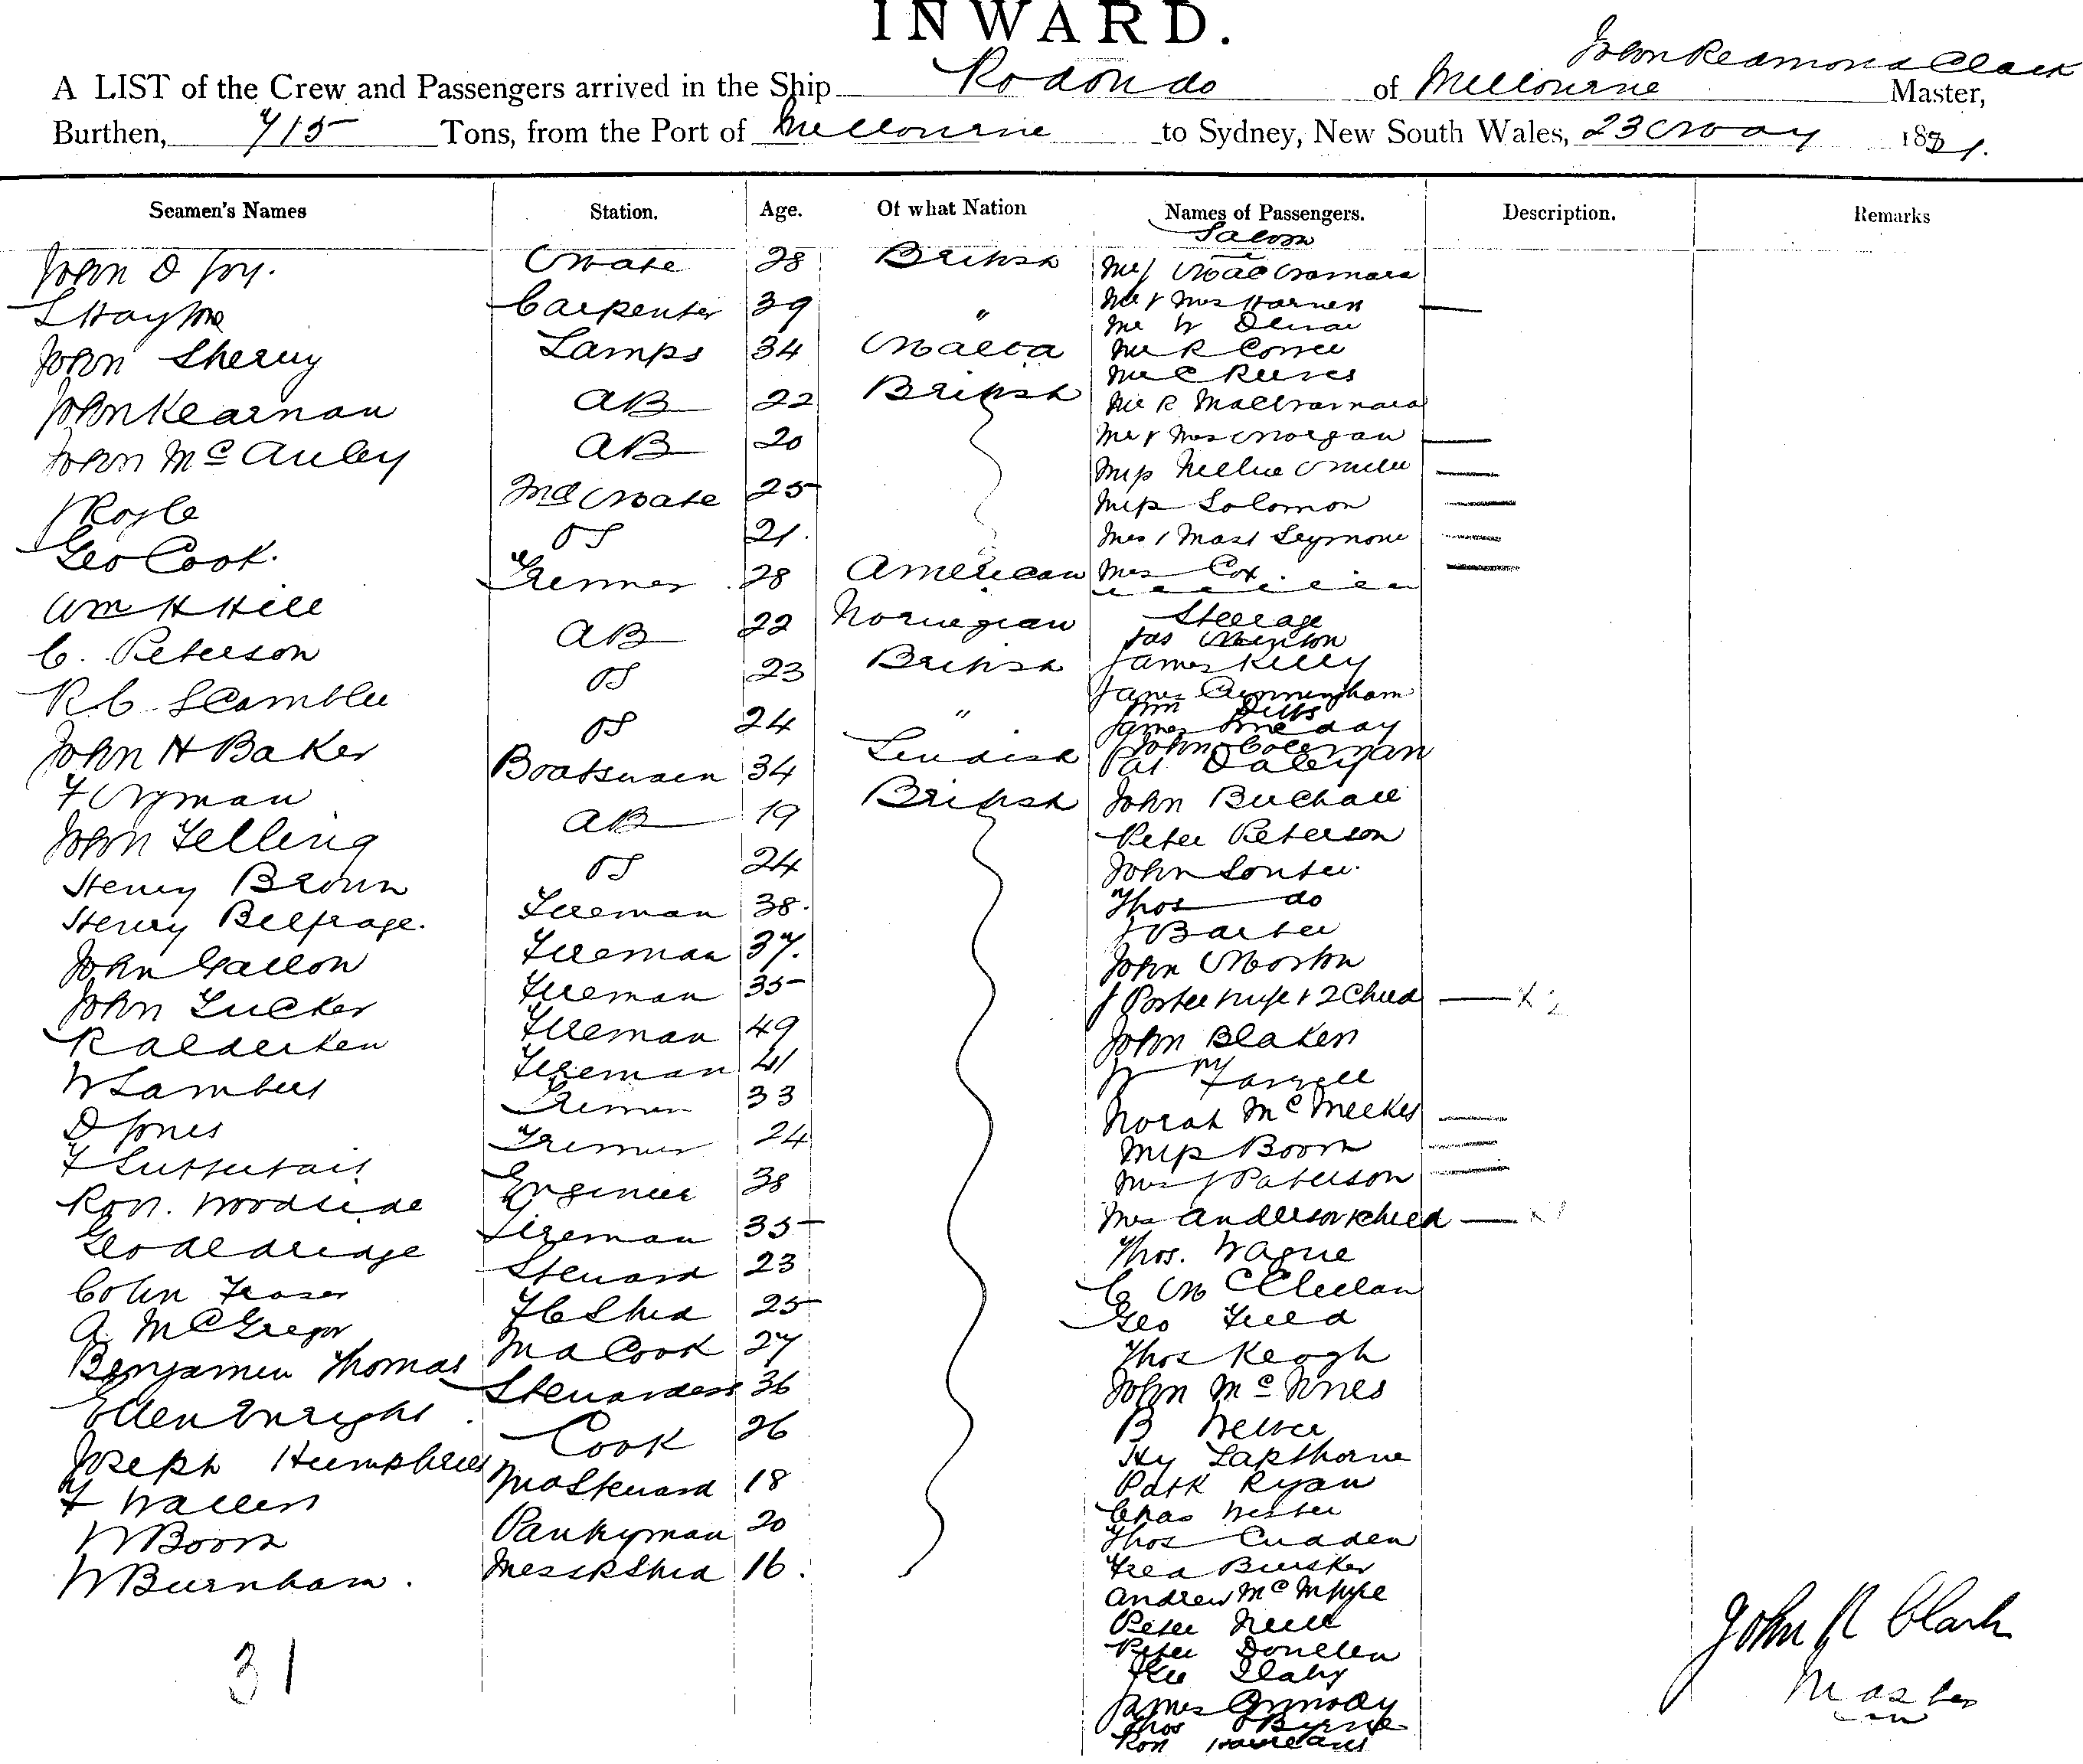 INWARD.
John Redmond Clark
A LIST of the Crew and Passengers arrived in the Ship Rodondo of Melbourne Master,
Burthen, 715 Tons, from the Port of Melbourne to Sydney, New South Wales, 23 May 1881.
Seamen's Names Station. Age. Of what Nation Names of Passengers. Description. Remarks
Saloon
John D Joy. Mate 28 British
Mr & Mrs
Carpenter 39 "
Mr W
John Lamps 34 Malta Mr R
Mr C Reeves
John Kearnan AB 22 British Mr R
John McAuley AB 20 Mr & Mrs Morgan
Miss Nellie
J Royle 2nd Mate 25 Miss Solomon
Geo Cook. OS 21. Mrs & Mast Seymour
Wm H Hill Trimmer 28 American Mrs Cox
Steerage
C. Peterson AB 22 Norwegian Jas
R C Scambler OS 23 British James Kelly
James Cunningham
John H Baker OS 24 "
James
John Coleman
Boatswain 34 Pat Daley
John Telling AB 19 British John
Peter Peterson
Henry Brown OS 24 John Souter.
Henry Belfrage. Fireman 38. Thos do
J Barber
John Gallon Fireman 37. John Morton
John Tucker Fireman 35 J Porter wife & 2 Child x 2
R Alderken Fireman 49 John Blaken
W Lambert Fireman 41 Farrell
D Jones Trimmer 33 Norah McMeekes
F Trimmer 24 Miss Boon
Robt. Woodside Engineer 38 Mrs J Paterson
Geo Aldridge Fireman 35 Mrs Anderson & child x 1
Colin Fraser Steward 23 Thos.
C McClellan
A. McGregor F C Stwd 25 Geo Field
Benjamin Thomas 2nd Cook 27 Thos Keogh
Ellen Enright. Stewardess 36 John McInnes
B
Joseph Humphries Cook 26 Hy Lapthorne
F 2nd Steward 18 Patk Ryan
Chas
W Boon Pantryman 20 Thos Cudden
W Burnham. Messr Stwd 16. Fred
Andrew McIntyre
Peter Neill
Peter Donellen
James Ormody
Thos OByrne
Robt
31
John R Clark
Master